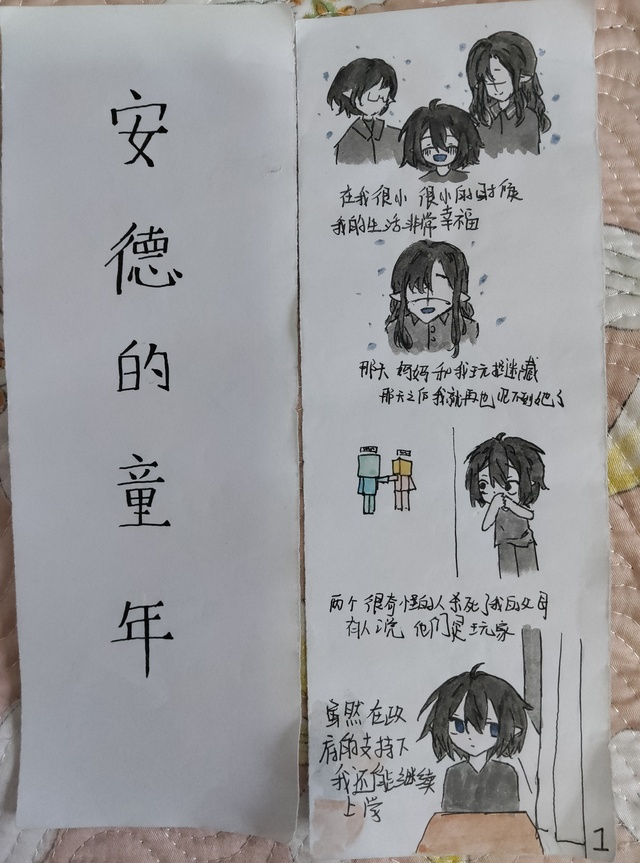 安德的童年
在我很小 很小的时候
我的生活非常幸福
那天 妈妈和我玩捉迷藏
那天之后我就再也见不到她了
两个很奇怪的人杀死了我的父母
有人说 他们是玩家
虽然在政
府的支持下
我还能继续
上学
1